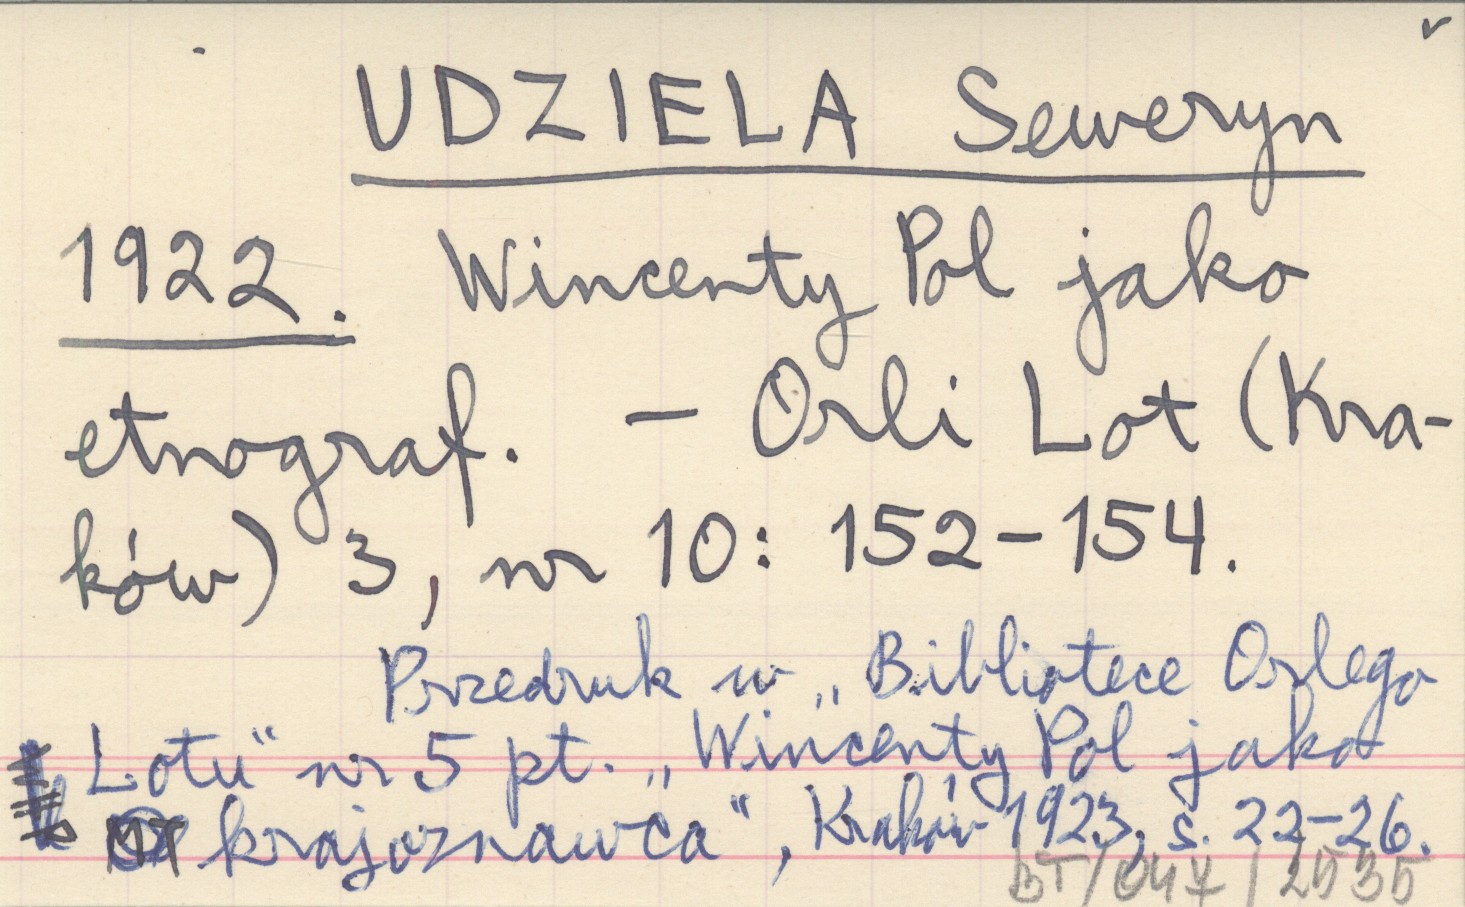 UDZIELA Seweryn
1922. Wincenty Pol jako
etnograf. — Orli Lot (Kra-
ków) 3, nr 10: 152-154.
Przedruk w „Bibliotece Orlego
Lotu“ nr 5 pt. „Wincenty Pol jako
MT krajoznawca“, Kraków 1923, s. 22-26.
BT/047/2535